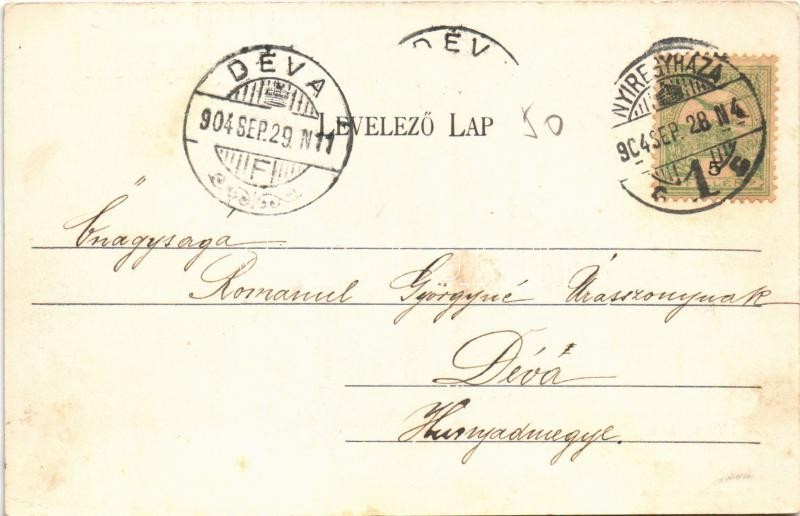 DÉVA
904 SEP. 29. N 11
F
DÉV
NYIREGYHÁZA
904 SEP. 28 N 4
5
1
LEVELEZŐ LAP
50
Őnagysága
Romanul Györgyné Úrasszonynak
Déva
Hunyadmegye.